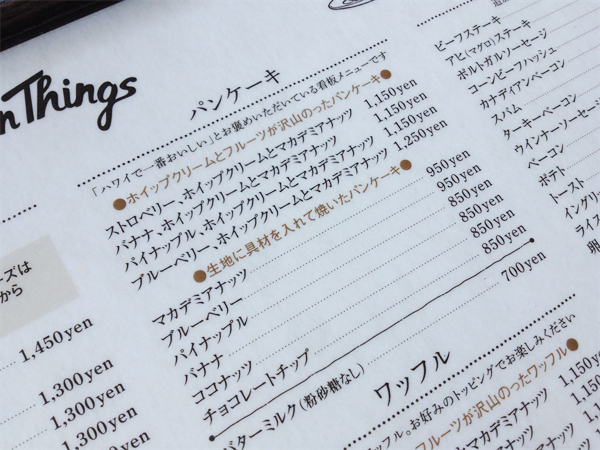 n Things
パンケーキ
「ハワイで一番おいしい」とお褒めいただいている看板メニューです
●ホイップクリームとフルーツが沢山のったパンケーキ●
ストロベリー、ホイップクリームとマカデミアナッツ 1,150yen
バナナ、ホイップクリームとマカデミアナッツ 1,150yen
パイナップル、ホイップクリームとマカデミアナッツ 1,150yen
ブルーベリー、ホイップクリームとマカデミアナッツ 1,250yen
●生地に具材を入れて焼いたパンケーキ●
マカデミアナッツ 950yen
ブルーベリー 950yen
パイナップル 850yen
バナナ 850yen
ココナッツ 850yen
チョコレートチップ 850yen
バターミルク(粉砂糖なし) 700yen
ワッフル
ッフル。お好みのトッピングでお楽しみください
フルーツが沢山のったワッフル●
とマカデミアナッツ 1,150y
マカデミアナッツ 1,15
カデミアナッツ
ビーフステーキ
アヒ(マグロ)ステーキ
ポルトガルソーセージ
コーンビーフハッシュ
カナディアンベーコン
スパム
ターキーベーコン
ウインナーソーセージ
ベーコン
ポテト
トースト
イングリ
ライス
卵
ーズは
から
1,450yen
1,300yen
1,300yen
1,300yen